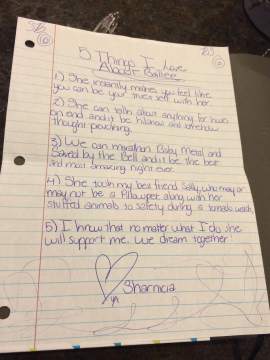 5 Things I Love
About Bailee
1) She instantly makes you feel like
you can be your truest self with her.
2) She can talk about anything for hours
on end and it be hilarious and somehow
thought provoking.
3) We can marathon Baby Metal and
Saved by the Bell and it be the best
and most amazing night ever.
4) She took my best friend Sally, who may or
may not be a Pillow pet along with her
stuffed animals to safety during a tornado watch.
5) I know that no matter what I do she
will support me. We dream together.
Sharnicia